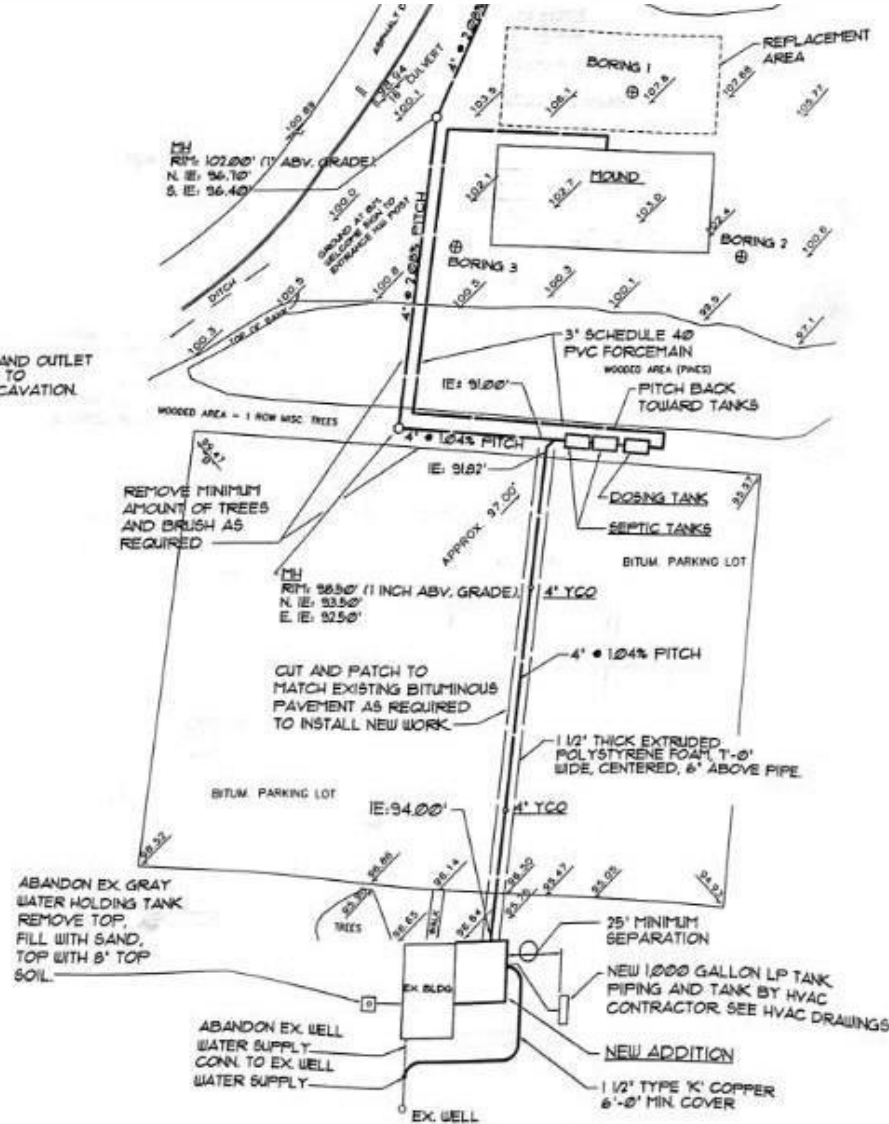 ASPHALT
4" @ 2.08%
18" CULVERT
100.1
100.69
103.5
106.1
BORING 1
107.8
107.88
105.77
REPLACEMENT
AREA
MH
RIM: 102.00' (1" ABV. GRADE)
N. IE: 96.70'
S. IE: 96.40'
100.0
GROUND AT 6X71
WELCOME SIGN TO
ENTRANCE NW POST
4" @ 2.08% PITCH
102.1
102.7
MOUND
103.0
102.4
BORING 2
100.6
BORING 3
DITCH
100.5
100.8
100.5
100.3
100.1
99.5
97.1
100.3
TOP OF BANK
AND OUTLET
TO
CAVATION.
3" SCHEDULE 40
PVC FORCEMAIN
WOODED AREA (PINES)
IE: 91.00'
PITCH BACK
TOWARD TANKS
WOODED AREA - 1 ROW MISC. TREES
4" @ 1.04% PITCH
IE: 91.82'
REMOVE MINIMUM
AMOUNT OF TREES
AND BRUSH AS
REQUIRED
APPROX. 97.00'
DOSING TANK
SEPTIC TANKS
BITUM. PARKING LOT
MH
RIM: 98.50' (1 INCH ABV. GRADE)
N. IE: 93.50'
E. IE: 92.50'
4" YCO
4" @ 1.04% PITCH
CUT AND PATCH TO
MATCH EXISTING BITUMINOUS
PAVEMENT AS REQUIRED
TO INSTALL NEW WORK
1 1/2" THICK EXTRUDED
POLYSTYRENE FOAM, 1'-0"
WIDE, CENTERED, 6" ABOVE PIPE.
BITUM. PARKING LOT
IE: 94.00'
4" YCO
98.52
96.86
96.14
96.30
95.47
95.05
94.92
ABANDON EX. GRAY
WATER HOLDING TANK
REMOVE TOP,
FILL WITH SAND,
TOP WITH 8" TOP
SOIL.
TREES
96.65
WALK
96.64
95.76
25' MINIMUM
SEPARATION
NEW 1,000 GALLON LP TANK
PIPING AND TANK BY HVAC
CONTRACTOR. SEE HVAC DRAWINGS
EX. BLDG
ABANDON EX. WELL
WATER SUPPLY
CONN. TO EX. WELL
WATER SUPPLY
NEW ADDITION
1 1/2" TYPE 'K' COPPER
6'-0" MIN. COVER
EX. WELL